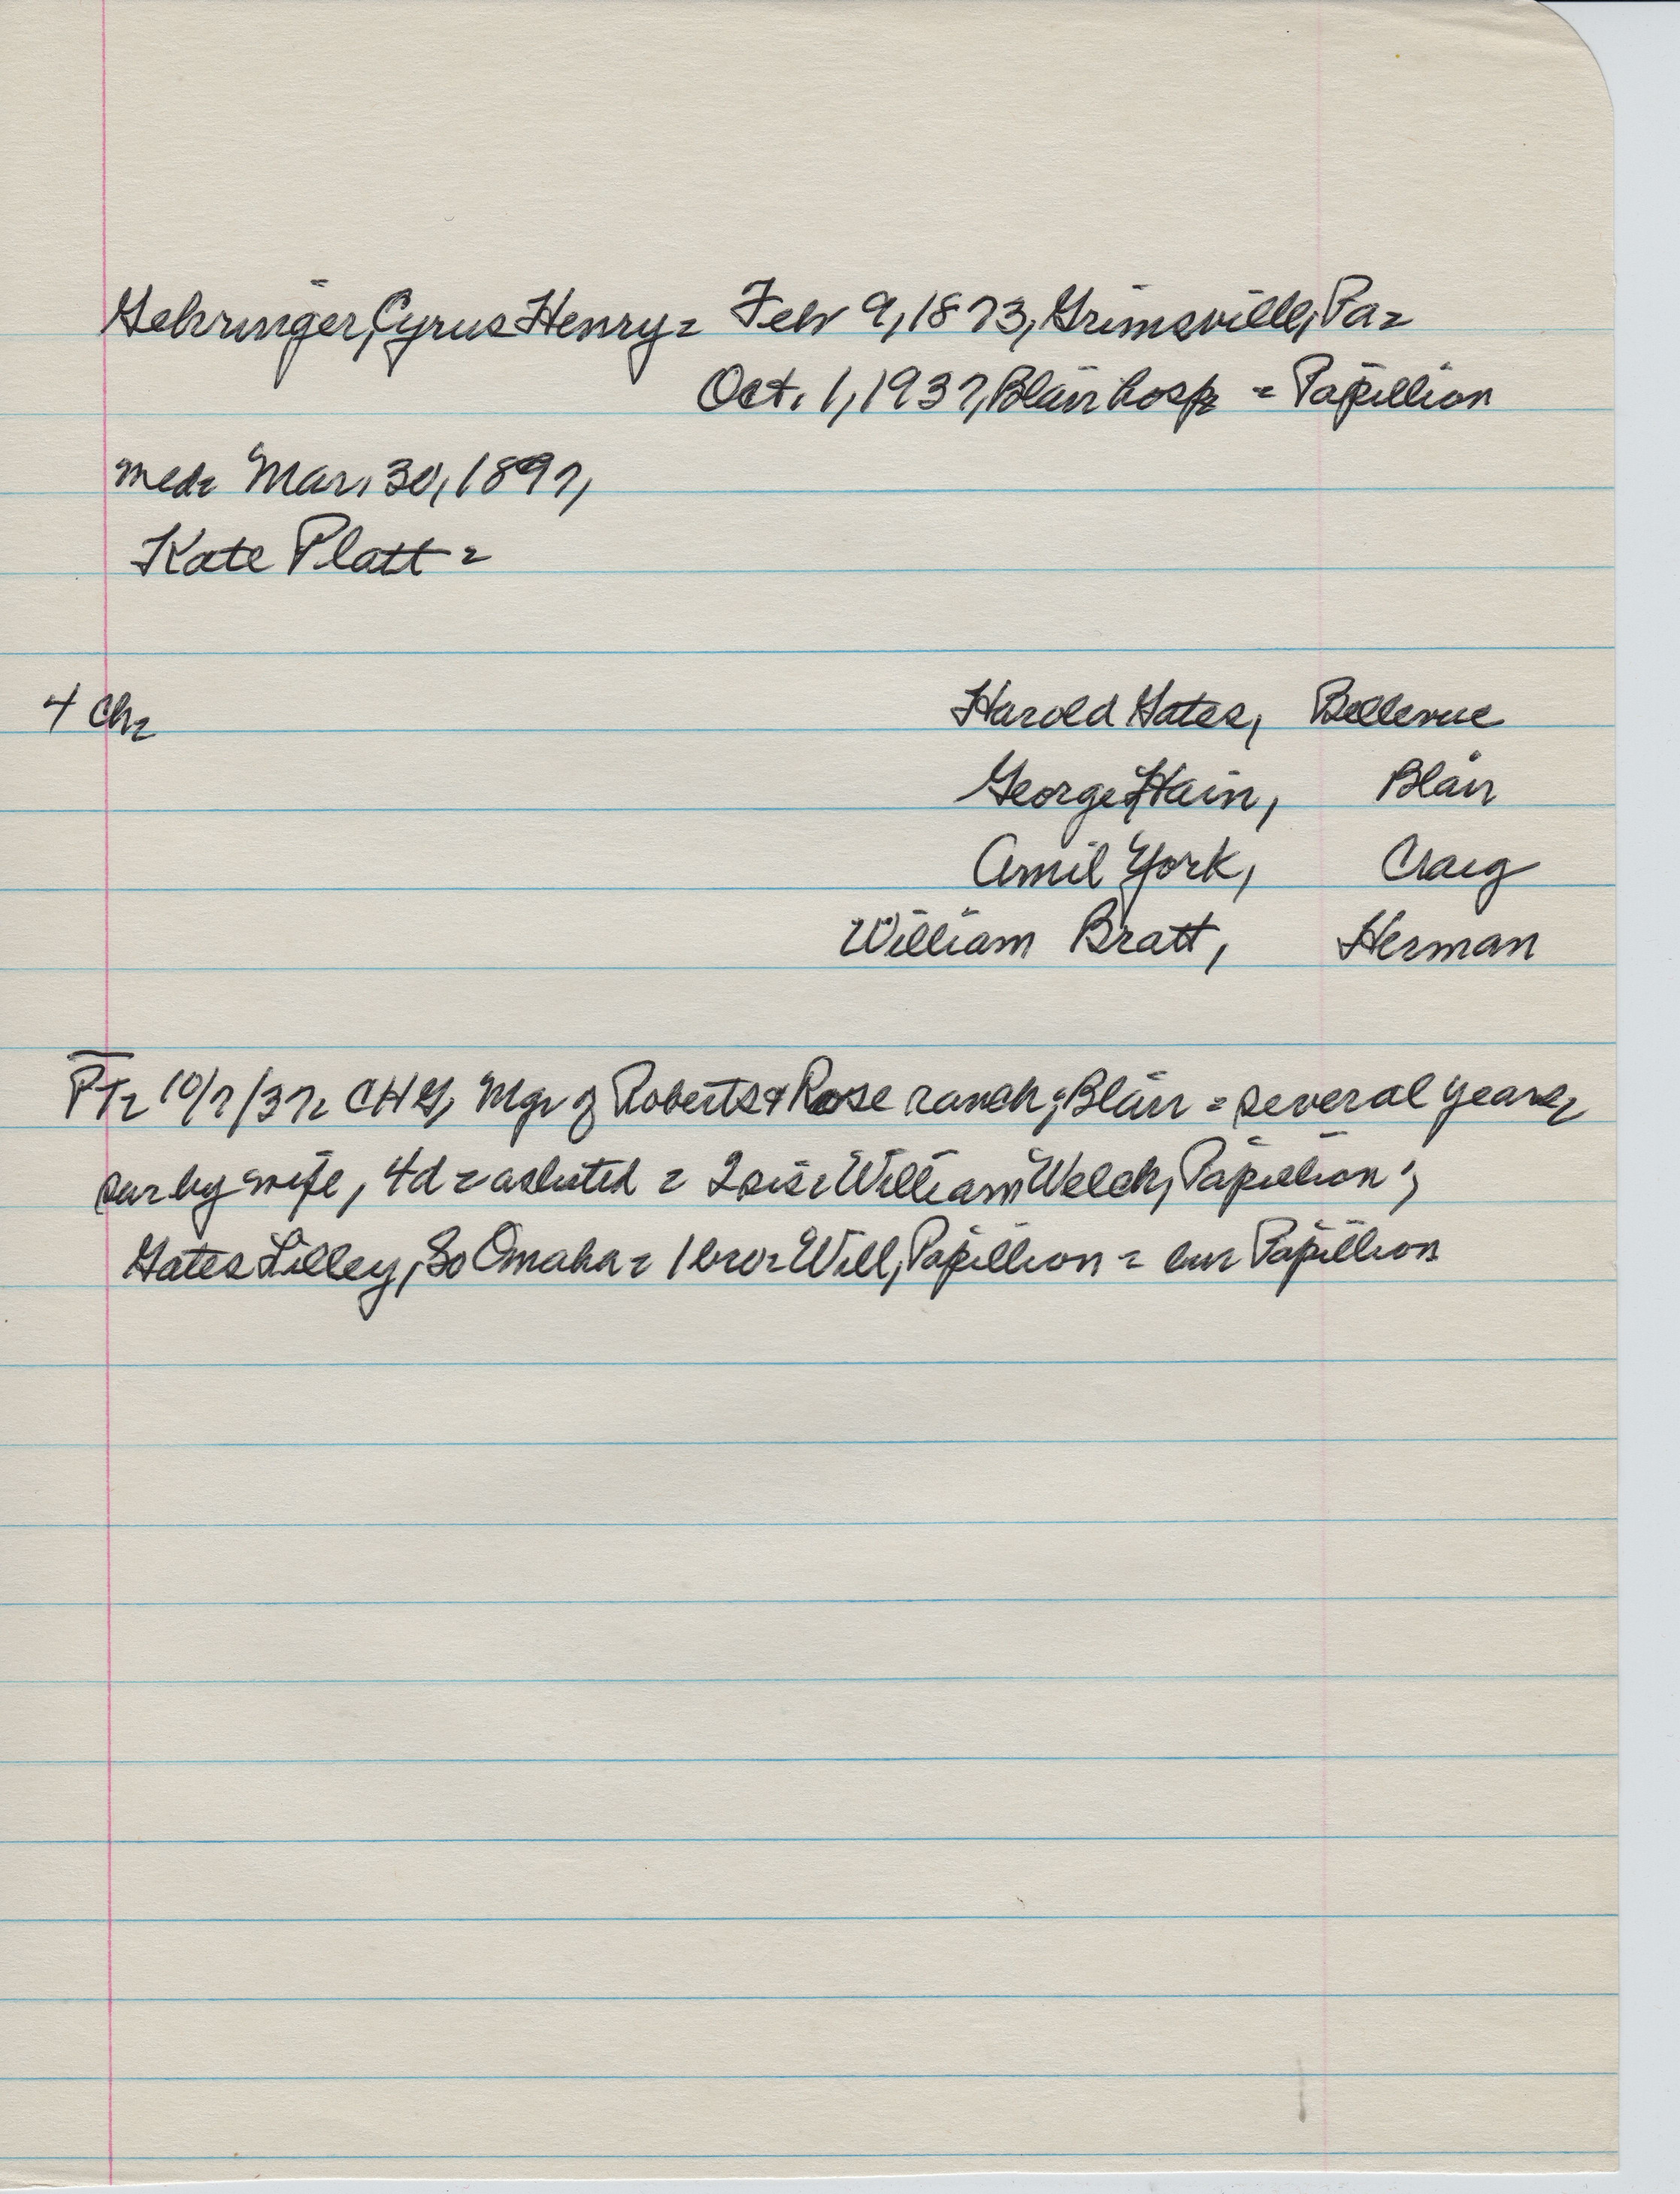 Gehringer, Cyrus Henry = Feb 9, 1873, Grimsville, Pa =
Oct. 1, 1937, Blair hosp = Papillion
med = Mar. 30, 1897,
Kate Platt =
4 Ch = Harold Gates, Bellevue
George Hain, Blair
Amil York, Craig
William Bratt, Herman
PT = 10/7/37 = CHG, Mgr of Roberts & Rose ranch, Blair = several years,
sur by wife, 4d = as listed = 2 sis = William Welch, Papillion;
Gates Lilley, So Omaha = 1 bro = Will, Papillion = bur Papillion